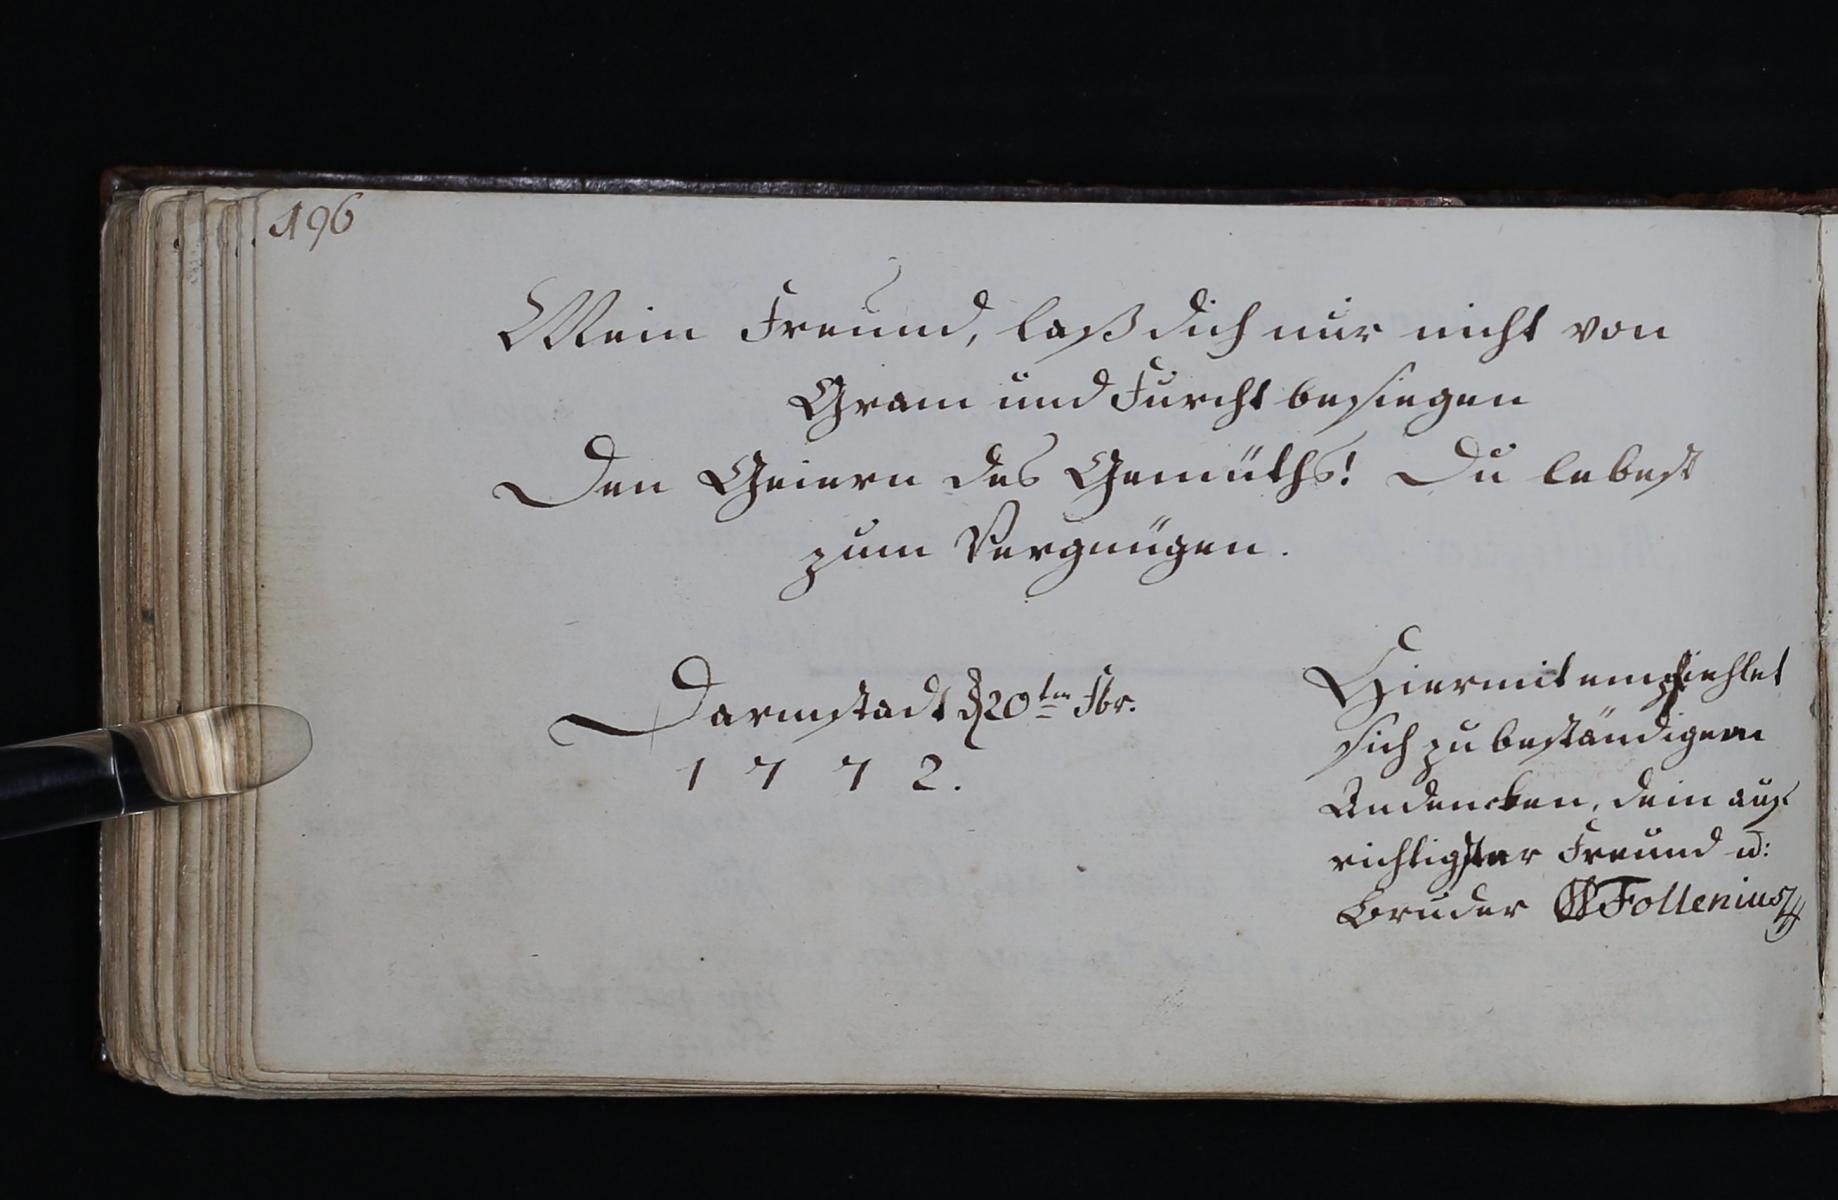 196
Mein Freund, laß dich nur nicht von
Gram und Furcht besiegen
Den Geiern des Gemüths! Du lebest
zum Vergnügen.
Darmstadt d 20ten Fbr.
1772.
Hiermit empfiehlet
sich zu beständigem
Andencken, dein auf-
richtigster Freund u:
Bruder Follenius